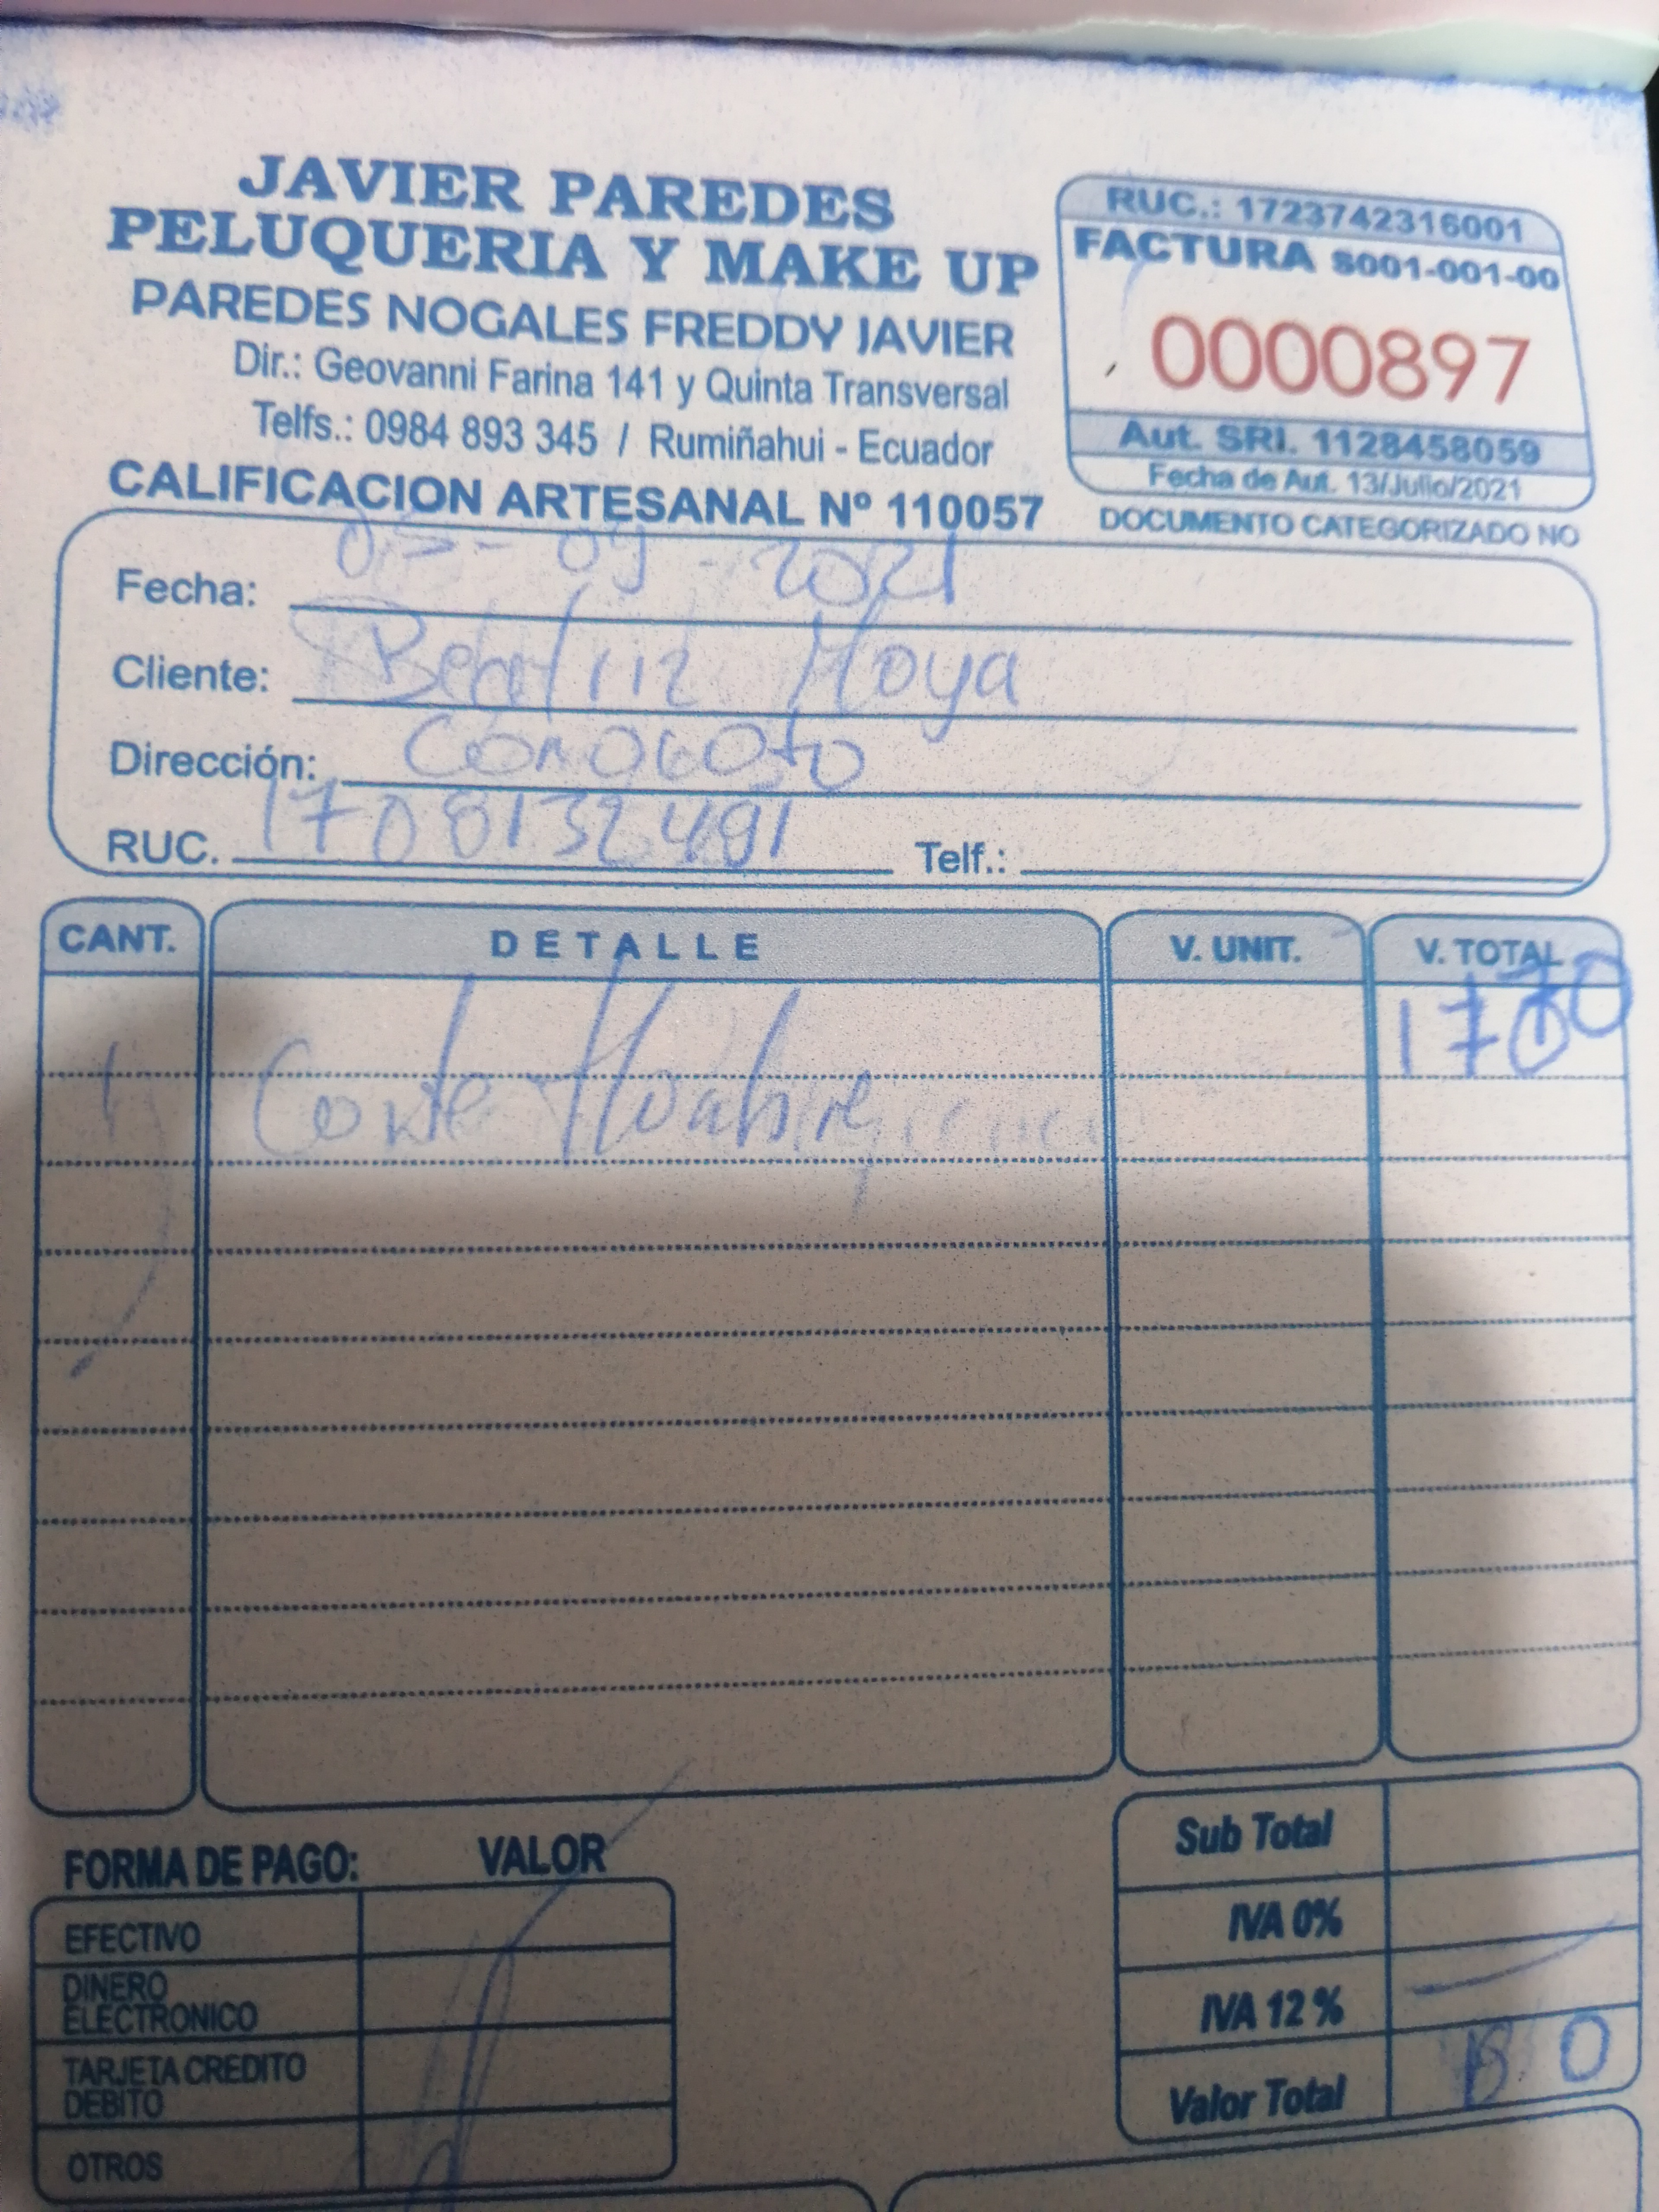 JAVIER PAREDES
PELUQUERIA Y MAKE UP
PAREDES NOGALES FREDDY JAVIER
Dir.: Geovanni Farina 141 y Quinta Transversal
Telfs.: 0984 893 345 / Rumiñahui - Ecuador
CALIFICACION ARTESANAL Nº 110057
RUC.: 1723742316001
FACTURA S001-001-00
0000897
Aut. SRI. 1128458059
Fecha de Aut. 13/Julio/2021
DOCUMENTO CATEGORIZADO NO
Fecha: 05-09-2021
Cliente: Beatriz Moya
Dirección: Conocoto
RUC. 1708132491 Telf.:
CANT. DETALLE V. UNIT. V. TOTAL
1 Corte
FORMA DE PAGO: VALOR
EFECTIVO
DINERO ELECTRONICO
TARJETA CREDITO DEBITO
OTROS
Sub Total
IVA 0%
IVA 12 %
Valor Total